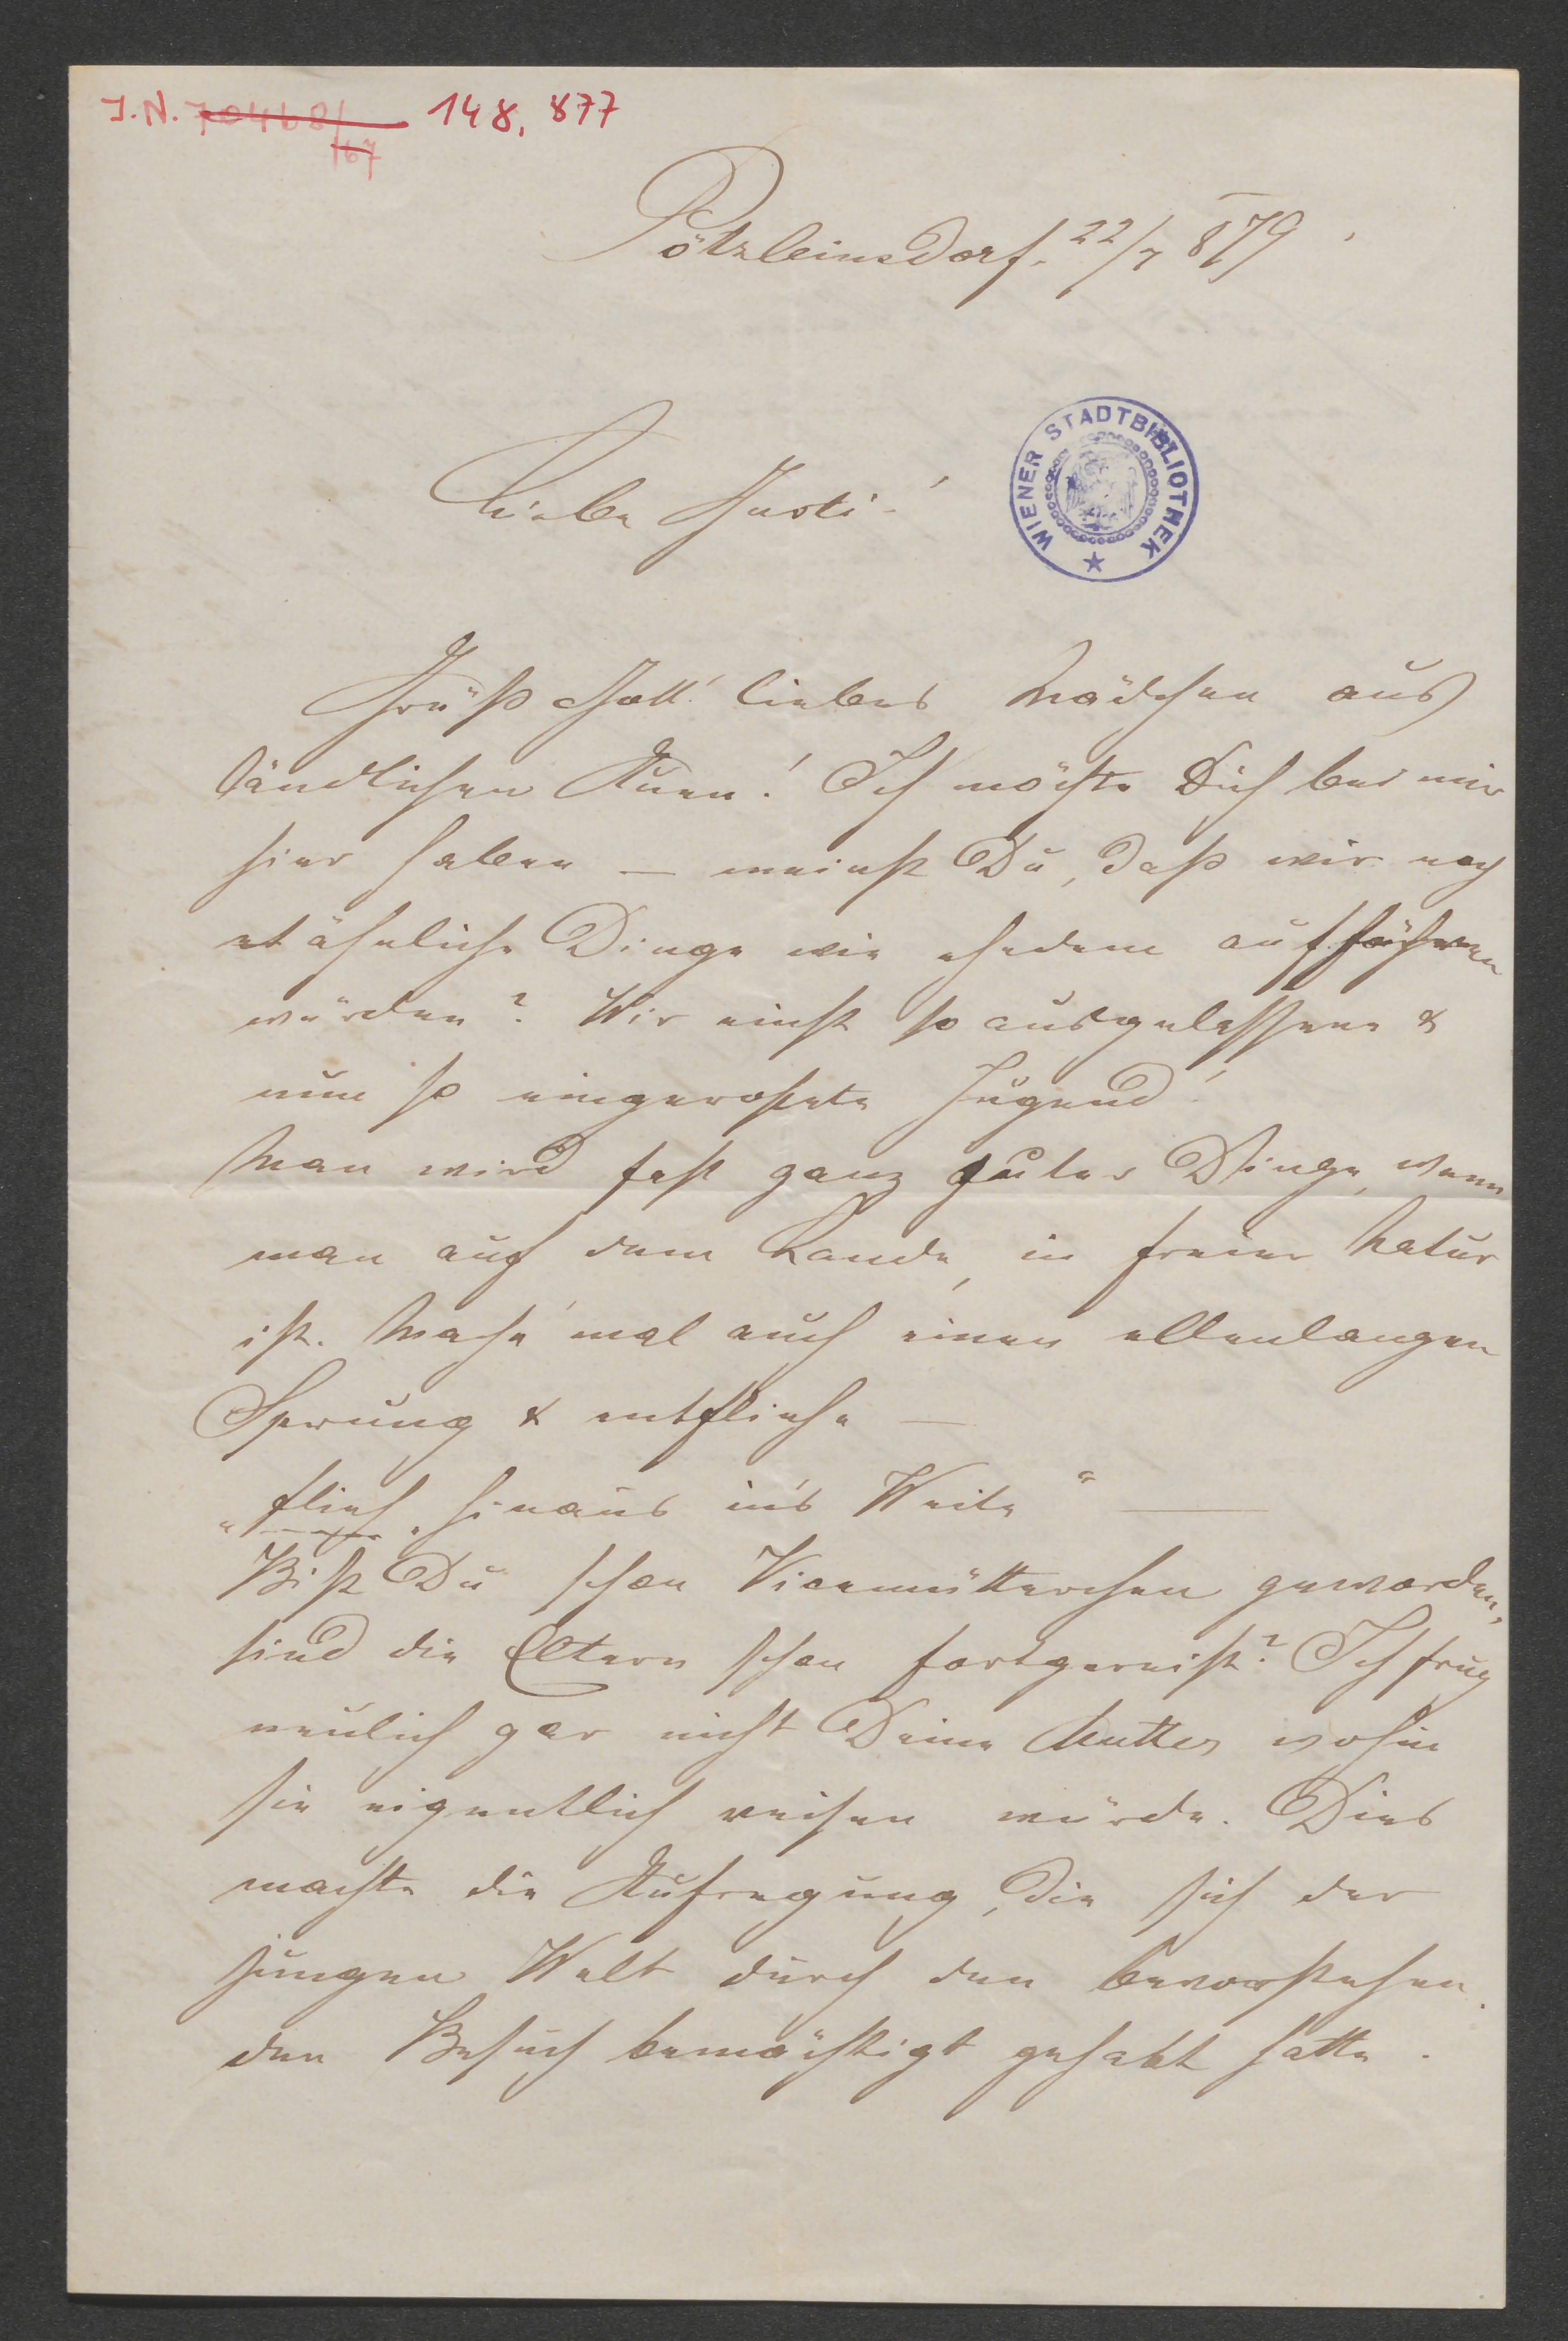 J.N. 70468/ 148.877
167
Pötzleinsdorf. 22/7 879
Liebe Gusti!
WIENER STADTBIBLIOTHEK
Grüß Gott! liebes Mädchen aus
ländlichen Auen! Ich möchte Dich bei mir
hier haben – meinst Du, daß wir noch
et ähnliche Dinge wie ehedem aufführen
würden? Wir einst so ausgelassene &
nun so eingerostete Jugend!
Man wird fast ganz guter Dinge, wenn
man auf dem Lande, in freier Natur
ist. Mache 'mal auch einen ellenlangen
Sprung & entfliehe –
"flieh hinaus in's Weite" –
Bist Du schon Vicemütterchen geworden,
sind die Eltern schon fortgereist? Ich frug
neulich gar nicht Deine Mutter wohin
sie eigentlich reisen würde. Dies
machte die Aufregung, die sich der
jungen Welt durch den bevorstehen
den Besuch bemächtigt gehabt hatte.